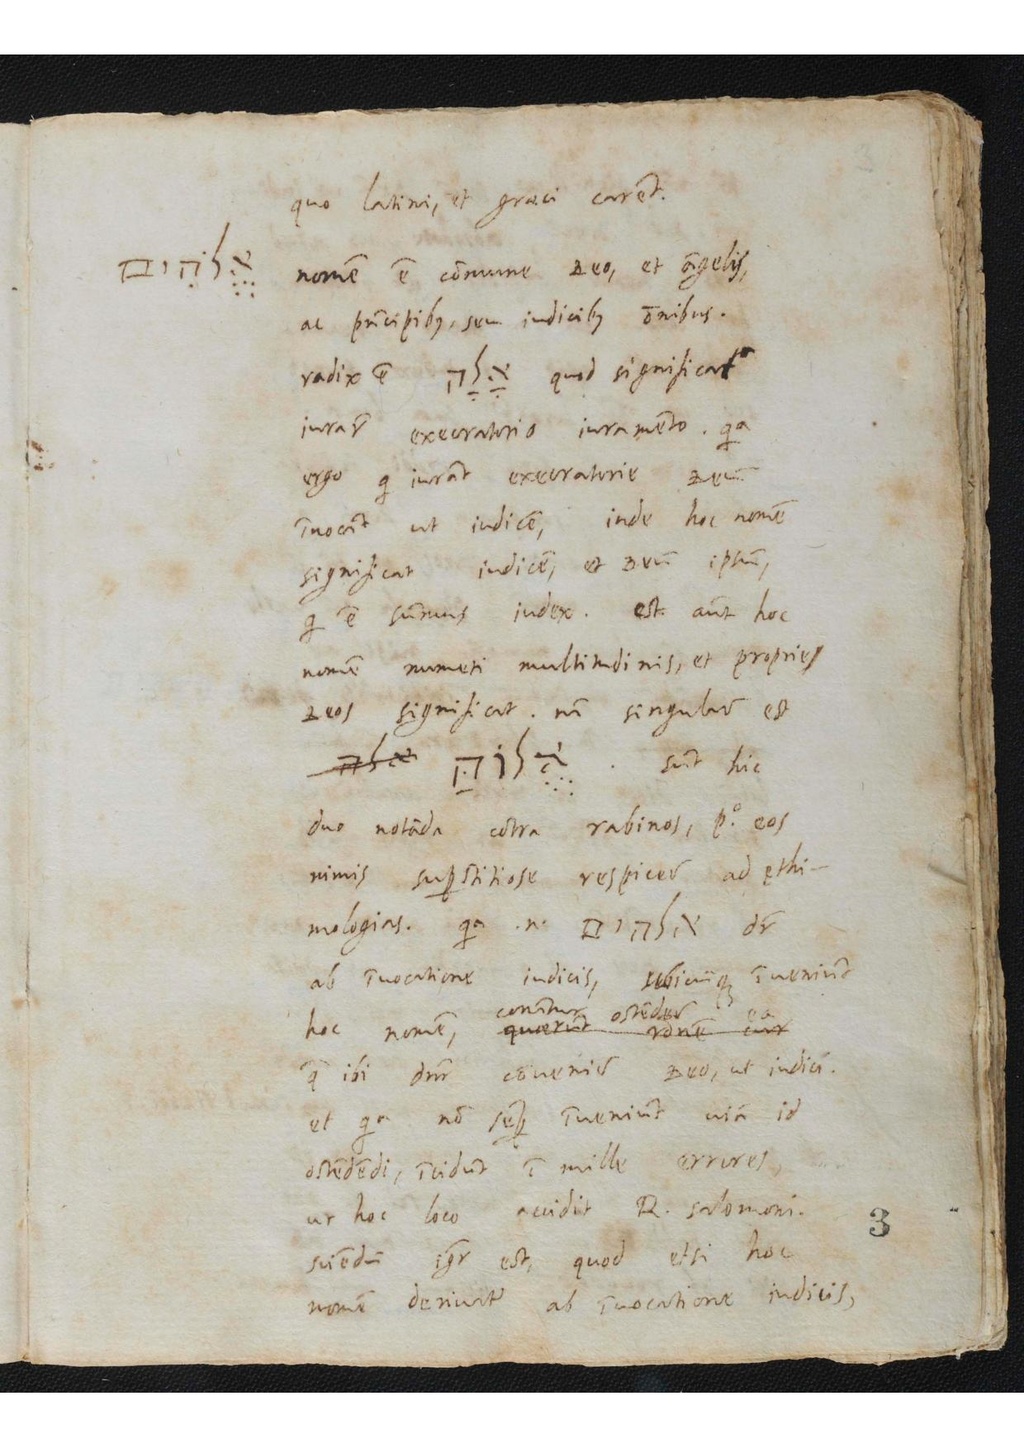 quo latini, et græci carēt.
אֱלֹהִים nomē ē cōmune Deo, et āgelis,
ac prīcipibꝫ, seu iudicibꝫ ōnibus.
radix ē אָלָה quod significat
iurar̄ execratorio iuramēto. qa
ergo q iurāt execratorie Deū
īuocāt ut iudicē, inde hoc nomē
significat iudicē, et Deū ipsū,
q ē sūmus iudex. est aūt hoc
nomē numeri multitudinis, et proprie
Deos significat. nā singular̄ est
אלה אֱלוֹהַּ . sūt hic
duo notāda cōtra rabinos, p.º eos
nimis suꝑstitiose respicer̄ ad ęthi-
mologias. qa .n. אלהים dr̄
ab īuocatione iudicis, ubicūqꝫ īueniūt
hoc nomē, quærūt rōnē cur
conātur ostēder̄ ea
q̄ ibi dnr̄ cōuenir̄ Deo, ut iudici.
et qa nō sēꝑ īueniūt uiā id
ostēdēdi, īcidūt ī mille errores,
ut hoc loco accidit R. salomoni.
sciēdū igr̄ est, quod etsi hoc
nomē deriuat ab īuocatione iudicis,
3